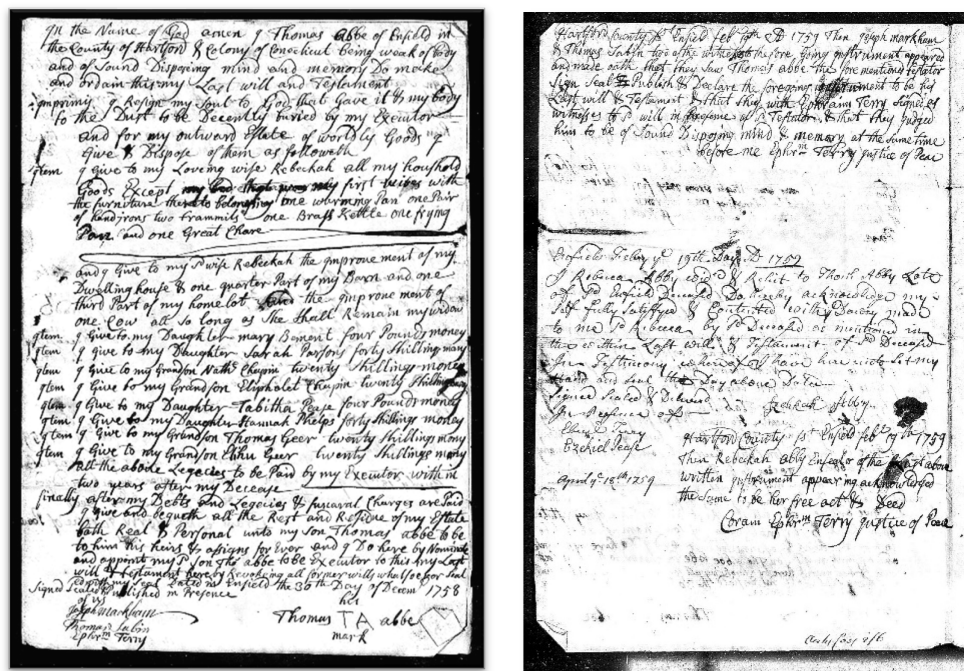 In the Name of God amen I Thomas abbe of Enfield in
the County of Hartford & Colony of Conecticut being weak of body
and of Sound Disposing mind and memory Do make
and ordain this my Last will and Testament
Imprimis I Resign my Soul to God that Gave it & my body
to the Dust to be Decently buried by my Executor
and for my outward Estate of worldly Goods I
Give & Dispose of them as followeth
Item I Give to my Loving wife Rebeckah all my houshold
Goods Except my first with
the furniture thereto belonging one warming Pan one Pair
of handjrons two Trammils one Brass Kettle one frying
Pan and one Great Chare
and I Give to my sd wife Rebeckah the improvement of my
Dwelling house & one quarter Part of my Barn and one
third Part of my homelot the improvement of
one Cow all so long as She Shall Remain my widow
Item I Give to my Daughter mary Bement four Pounds money
Item I give to my Daughter Sarah Parsons forty Shillings mony
Item I give to my Grandson Nathl Chapin twenty Shillings money
Item I Give to my Grandson Eliphalet Chapin twenty Shillings
Item I Give to my Daughter Tabitha Pease four Pounds money
Item I Give to my Daughter Hannah Phelps forty Shillings money
Item I Give to my Grandson Thomas Geer twenty Shillings mony
Item I Give to my Grandson Elihu Geer twenty Shillings mony
all the above Legacies to be Paid by my Executor within
two years after my Decease
finally after my Debts and Legacies & funaral Charges are Paid
I give and bequeth all the Rest and Residue of my Estate
both Real & Personal unto my Son Thomas abbe to be
to him his heirs & assigns for Ever and I Do here by Nominate
and appoint my sd Son Thos abbe to be Executor to this my Last
will & Testament hereby Revoking all former wills whatsoever Seal
my Seal Dated in Enfield the 30th Day of Decem 1758
Signed Sealed Published in Presence
of us
his
Joseph markham
Thomas TA abbe
Thomas Sabin
mark
Ephrm Terry
Hartford County ss Enfield febr 19th AD 1759 Then Joseph markham
& Thomas Sabin two of the witnesses to the fore going instrument appeared
and made oath that they Saw Thomas abbe the fore mentioned Testator
Sign Seal & Publish & Declare the foregoing instrument to be his
Last will & Testament & that they with Ephraim Terry Signed as
witnesses to sd will in Presence of sd Testator & that they judged
him to be of Sound Disposing mind & memory at the Same time
before me Ephrm Terry Justice of Peace
Enfield Febry ye 19th Day AD 1759
I Rebecca Abby & Relict to Thos Abby Late
of sd Enfield Deceased Do hereby acknowledge my
Self fully Satisfyed & Contented with Dowry made
to me sd Rebecca by sd Deceased as mentioned in
the within Last will & Testament of sd Deceased
In Testimony whereof I have here unto Set my
Hand and Seal the Day above
Signed Sealed & Delivered
In Presence of
Rebekah Abby
Ezekiel Pease
Hartford County ss Enfield febr 19th 1759
Then Rebeckah abby of the above
written instrument appearing acknowledged
the Same to be her free act & Deed
Coram Ephrm Terry Justice of Peace
April ye 18th 1759